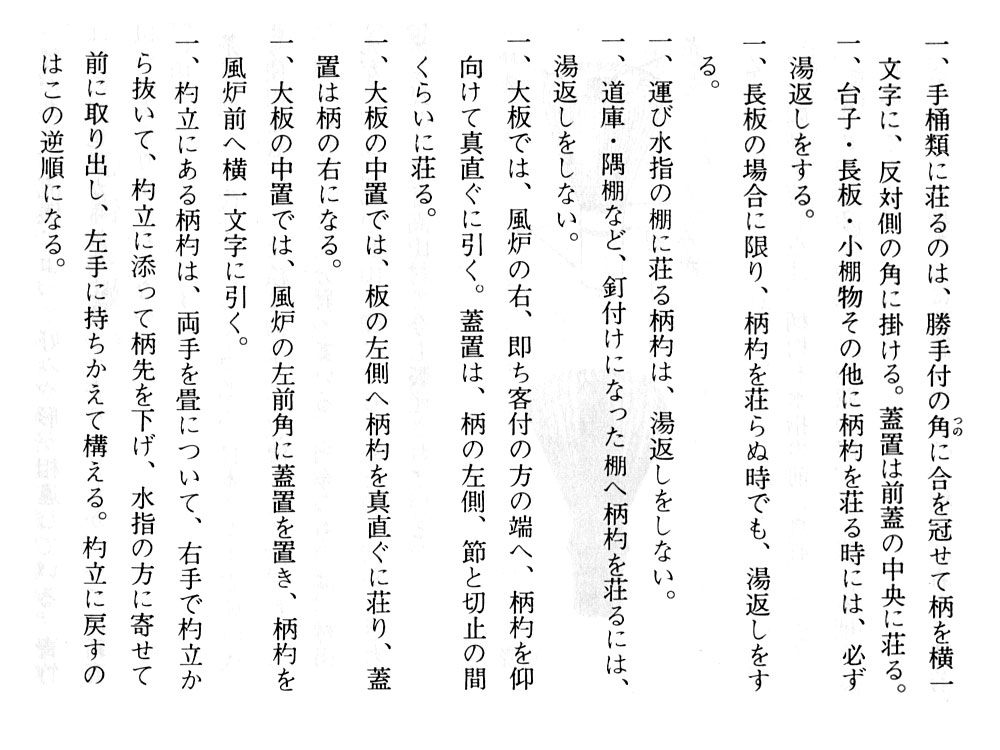 一、手桶類に荘るのは、勝手付の角に合を冠せて柄を横一
つの
文字に、反対側の角に掛ける。蓋置は前蓋の中央に荘る。
一、台子・長板・小棚物その他に柄杓を荘る時には、必ず
湯返しをする。
一、長板の場合に限り、柄杓を荘らぬ時でも、湯返しをす
る。
一、運び水指の棚に荘る柄杓は、湯返しをしない。
一、道庫・隅棚など、釘付けになった棚へ柄杓を荘るには、
湯返しをしない。
一、大板では、風炉の右、即ち客付の方の端へ、柄杓を仰
向けて真直ぐに引く。蓋置は、柄の左側、節と切止の間
くらいに荘る。
一、大板の中置では、板の左側へ柄杓を真直ぐに荘り、蓋
置は柄の右になる。
一、大板の中置では、風炉の左前角に蓋置を置き、柄杓を
風炉前へ横一文字に引く。
一、杓立にある柄杓は、両手を畳について、右手で杓立か
ら抜いて、杓立に添って柄先を下げ、水指の方に寄せて
前に取り出し、左手に持ちかえて構える。杓立に戻すの
はこの逆順になる。